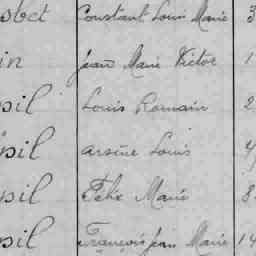 Constant Louis Marie 3
in Jean Marie Victor 1
sil Louis Romain 2
sil Arsène Louis 4
sil Félix Marie 8
sil François Jean Marie 14